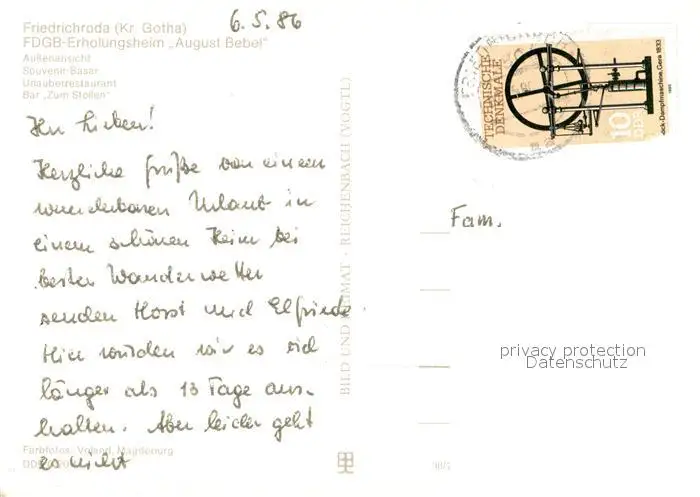 Friedrichroda (Kr. Gotha)
FDGB-Erholungsheim „August Bebel"
Außenansicht
Souvenir-Basar
Urlauberrestaurant
Bar „Zum Stollen"
6.5.86
Ihr Lieben!
Herzliche Grüße von einem
wunderbaren Urlaub in
einem schönen Heim bei
bester Wanderwetter
senden Horst und Elfriede.
Hier würden wir es
länger als 13 Tage aus-
halten. Aber leider geht
es nicht
Farbfotos: Voland, Magdeburg
BILD UND HEIMAT · REICHENBACH (VOGTL)
TECHNISCHE
DENKMALE
10
DDR
ock-Dampfmaschine, Gera 1833
Fam.
privacy protection
Datenschutz